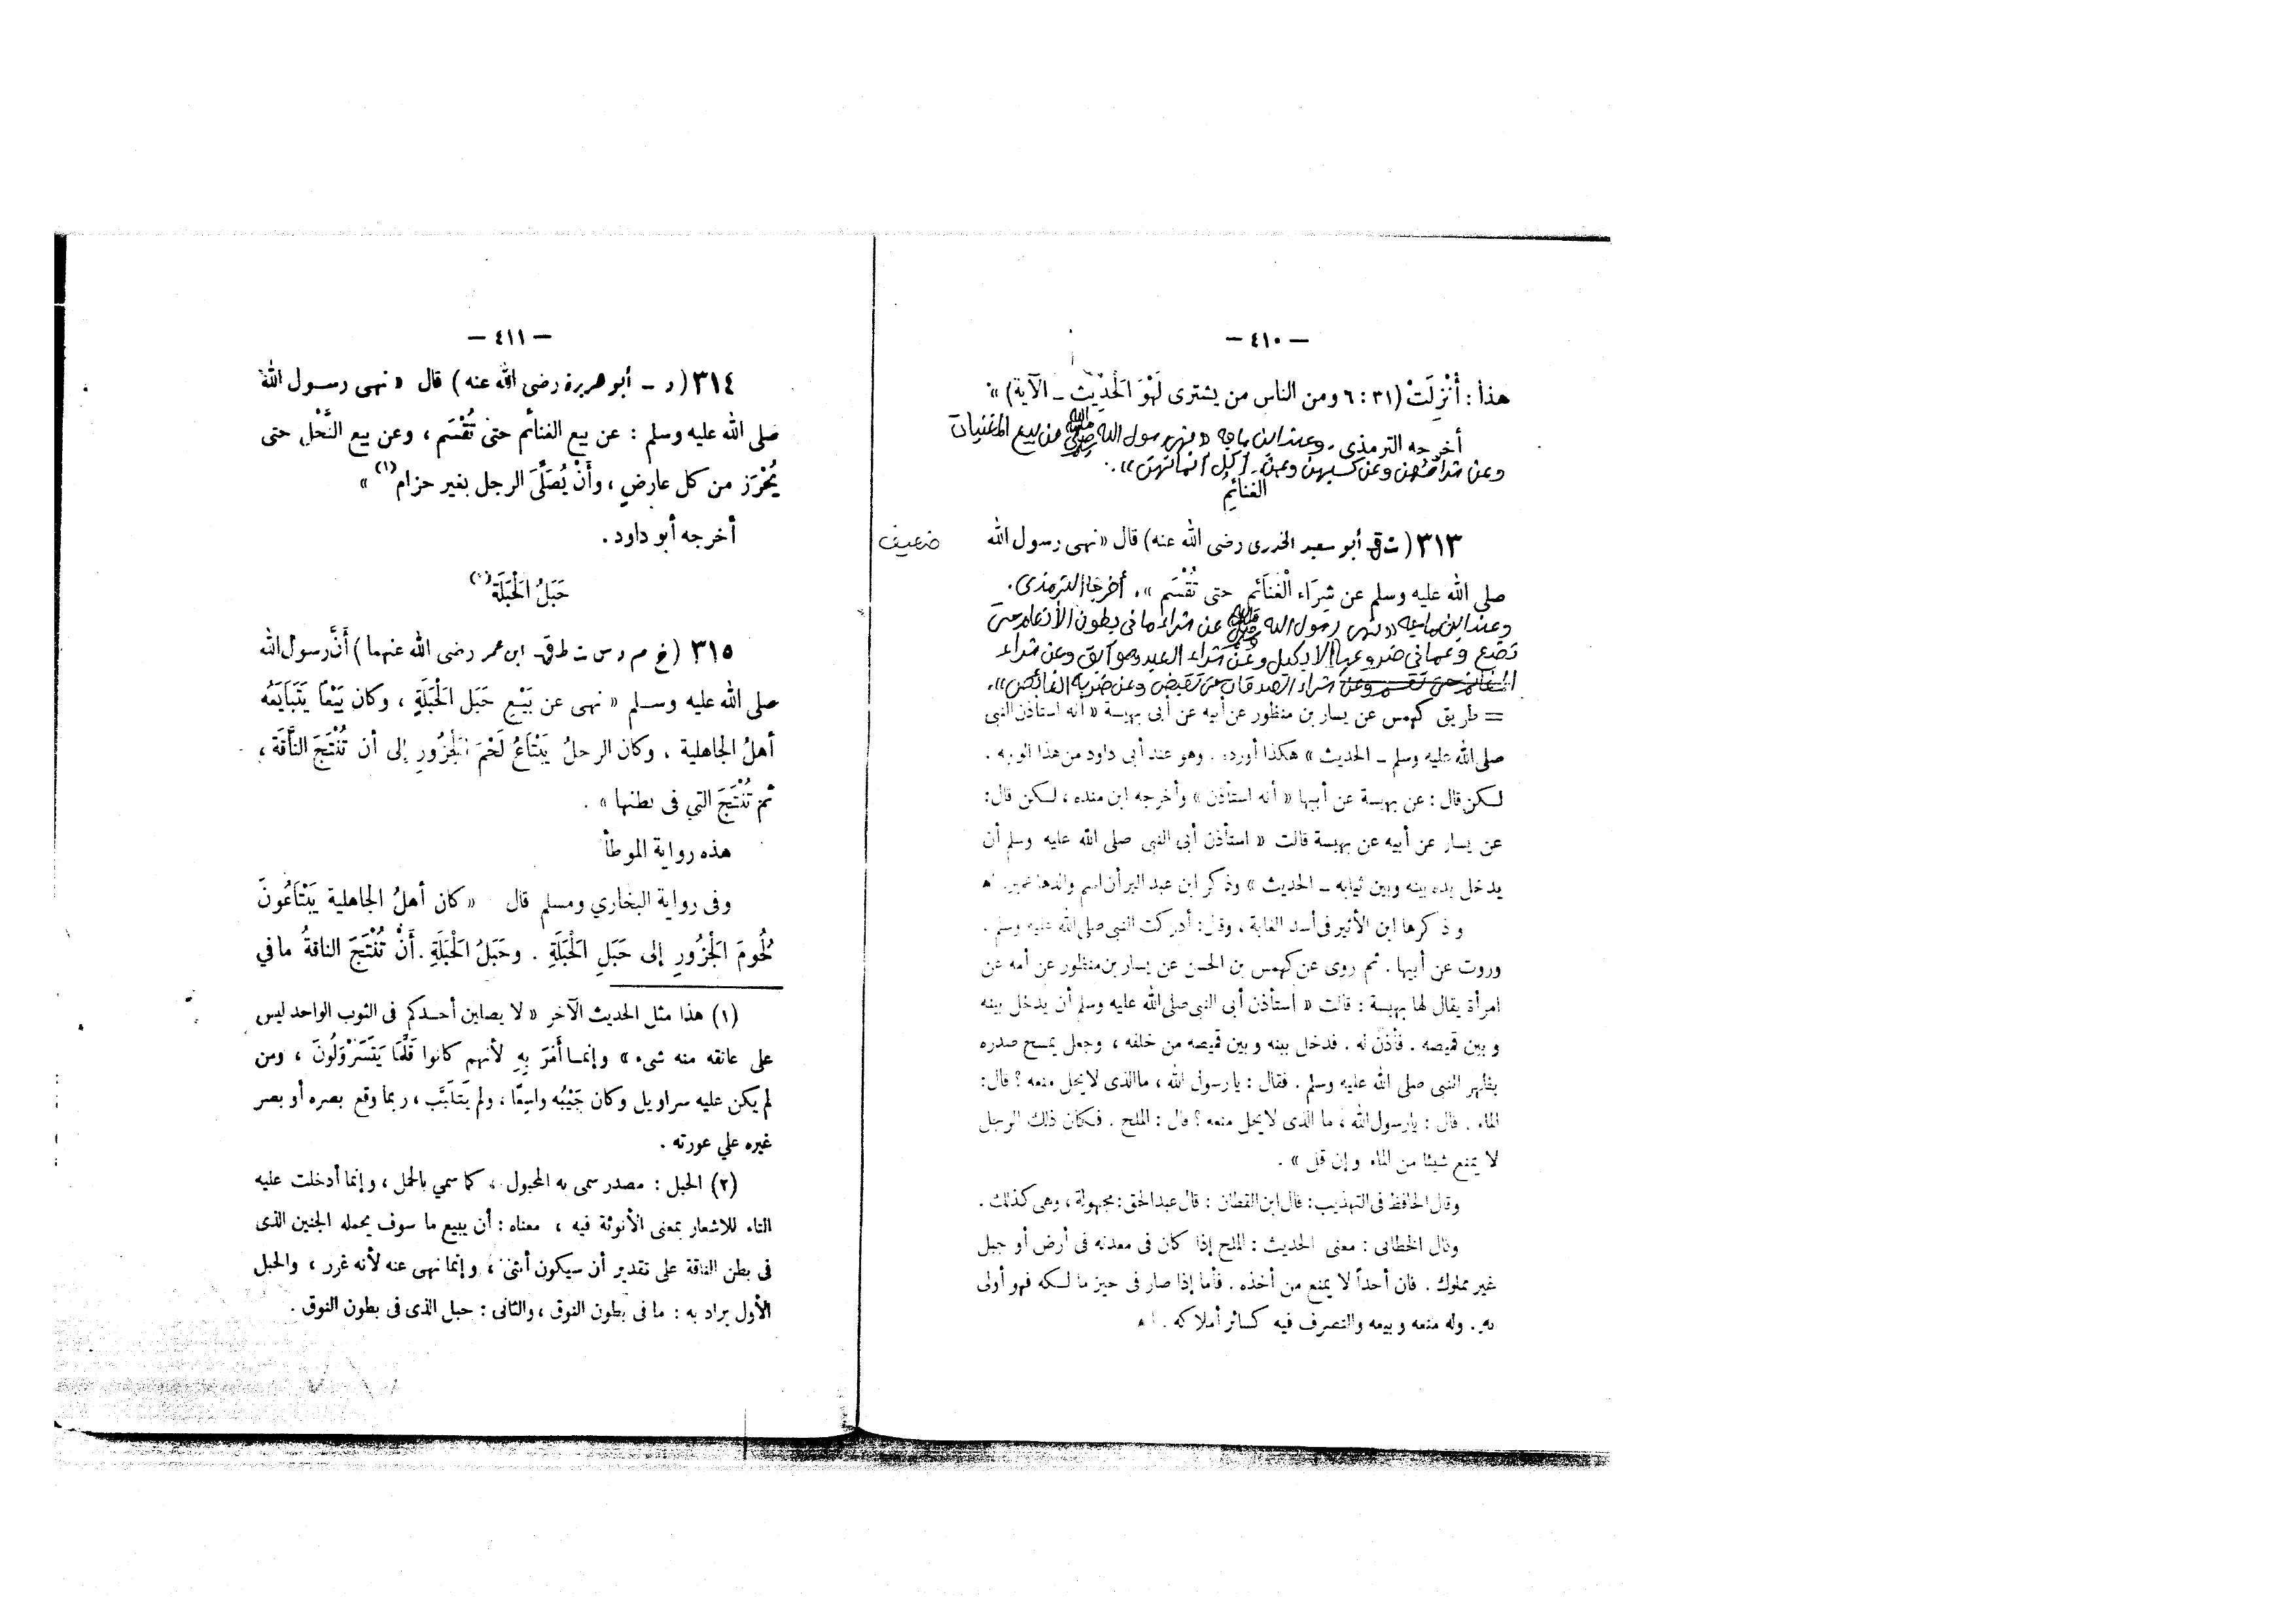 — ٤١٠ —
هذا : أُنْزِلَتْ (٣١ : ٦ ومن الناس من يشترى لَهْوَ الَحْدِيثِ ــ الآية) » .
أخرجه الترمذى . وعند ابن ماجه « نهى رسول الله ﷺ عن بيع المغنيات
وعن شرائهن وعن كسبهن وعن أكل أثمانهن » .
الغنائمُ
٣١٣ (ت ق ـ أبو سعيد الخدرى رضى الله عنه) قال « نهى رسول الله
ضعيف
صلى الله عليه وسلم عن شِرَاء الْغَنَائم حتى تُقْسَم » . أخرجه الترمذى .
وعند ابن ماجه « نهى رسول الله ﷺ عن شراء ما فى بطون الأنعام حتى
تضع وعما فى ضروعها إلا بكيل وعن شراء العبد وهو آبق وعن شراء
المغانم حتى تقسم وعن شراء الصدقات حتى تقبض وعن ضربة الغائص » .
= طريق كهمس عن يسار بن منظور عن أبيه عن أبى بهيسة « أنه استأذن النبى
صلى الله عليه وسلم ــ الحديث » هكذا أورده . وهو عند أبى داود من هذا الوجه .
لسكن قال : عن بهيسة عن أبيها « أنه استأذن » وأخرجه ابن منده ، لسكن قال :
عن يسار عن أبيه عن بهيسة قالت « استأذن أبى النبى صلى الله عليه وسلم أن
يدخل يده بينه وبين ثيابه ــ الحديث » وذكر ابن عبد البر أن اسم والدها عمير. اهـ
وذكرها ابن الأثير فى أسد الغابة ، وقال : أدركت النبى صلى الله عليه وسلم .
وروت عن أبيها . ثم روى عن كهمس بن الحسن عن يسار بن منظور عن أمه عن
امرأة يقال لها بهيسة : قالت « استأذن أبى النبى صلى الله عليه وسلم أن يدخل بينه
وبين قميصه . فأذن له . فدخل بينه وبين قميصه من خلفه ، وجعل يمسح صدره
بظهر النبى صلى الله عليه وسلم . فقال : يا رسول الله ، ما الذى لا يحل منعه ؟ قال :
الماء . قال : يا رسول الله ، ما الذى لا يحل منعه ؟ قال : الملح . فكان ذلك الرجل
لا يمنع شيئا من الماء وإن قل » .
وقال الحافظ فى التهذيب : قال ابن القطان : قال عبد الحق : مجهولة ، وهى كذلك .
وقال الخطابى : معنى الحديث : الملح إذا كان فى معدنه فى أرض أو جبل
غير مملوك . فان أحداً لا يمنع من أخذه . فأما إذا صار فى حيز مالكه فهو أولى
به . وله منعه وبيعه والتصرف فيه كسائر أملاكه . اهـ
— ٤١١ —
٣١٤ (د ــ أبو هريرة رضى الله عنه) قال « نهى رسول الله
صلى الله عليه وسلم : عن بيع الغنائم حتى تُقْسَم ، وعن بيع النَّخْل حتى
يُحْرَزَ من كل عارضٍ ، وأَنْ يُصَلِّىَ الرجل بغير حزام (١) »
أخرجه أبو داود .
حَبَلُ الَحْبَلَةِ (٢)
٣١٥ (خ م د س ت ط ق ـ ابن عمر رضى الله عنهما) أَنَّ رسول الله
صلى الله عليه وسلم « نهى عن بَيْعِ حَبَل الَحْبَلَةِ ، وكان بَيْعًا يَتَبَايَعُه
أهلُ الجاهلية . وكان الرجلُ يَبْتَاعُ لَحْمَ الجْزُورِ إلى أن تُنْتَجَ النَّاقَة ،
ثم تُنْتَجَ التي فى بطنها » .
هذه رواية الموطأ
وفى رواية البخاري ومسلم قال « كان أهلُ الجاهلية يَبْتَاعُونَ
لُحُومَ الَجْزُورِ إلى حَبَلِ الَحْبَلَةِ . وحَبَلُ الَحْبَلَةِ . أَنْ تُنْتَجَ الناقةُ ما في
(١) هذا مثل الحديث الآخر « لا يصلين أحدكم فى الثوب الواحد ليس
على عاتقه منه شىء » وإنما أَمَرَ بِهِ لأنهم كانوا قَلَّمَا يَتَسَرْوَلُونَ ، ومن
لم يكن عليه سراويل وكان جَيْبُه واسِعًا ، ولم يَتَلَبَّب ، ربما وقع بصره أو بصر
غيره علي عورته .
(٢) الحبل : مصدر سمى به المحبول ، كما سمي بالحمل ، وإنما أدخلت عليه
التاء للاشعار بمعنى الأنوثة فيه ، معناه : أن يبيع ما سوف يحمله الجنين الذى
فى بطن الناقة على تقدير أن سيكون أنثى ، وإنما نهى عنه لأنه غرر ، والحبل
الأول يراد به : ما فى بطون النوق ، والثانى : حبل الذى فى بطون النوق .